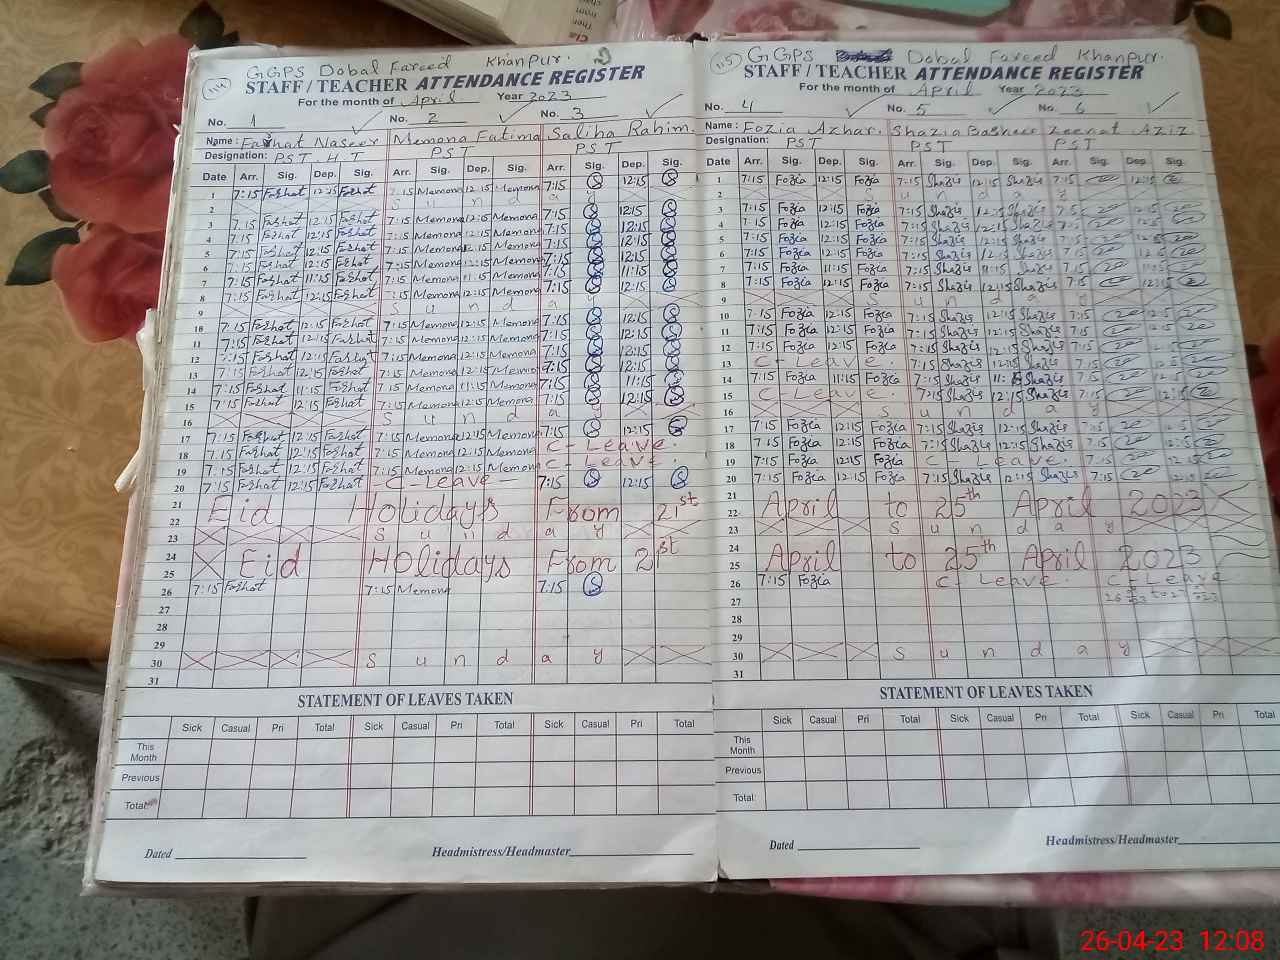 114
GGPS Dobal Fareed Khanpur.
STAFF / TEACHER ATTENDANCE REGISTER
For the month of April Year 2023
No. 1 No. 2 No. 3
Name: Farhat Naseer Memona Fatima Saliha Rahim.
Designation: PST. H.T PST PST
Date Arr. Sig. Dep. Sig. Arr. Sig. Dep. Sig. Arr. Sig. Dep. Sig.
1 7:15 Farhat 12:15 Farhat 7:15 Memona 12:15 Memona 7:15 12:15
2 Sunday
3 7:15 Farhat 12:15 Farhat 7:15 Memona 12:15 Memona 7:15 12:15
4 7:15 Farhat 12:15 Farhat 7:15 Memona 12:15 Memona 7:15 12:15
5 7:15 Farhat 12:15 Farhat 7:15 Memona 12:15 Memona 7:15 12:15
6 7:15 Farhat 12:15 Farhat 7:15 Memona 12:15 Memona 7:15 12:15
7 7:15 Farhat 11:15 Farhat 7:15 Memona 11:15 Memona 7:15 11:15
8 7:15 Farhat 12:15 Farhat 7:15 Memona 12:15 Memona 7:15 12:15
9 Sunday
10 7:15 Farhat 12:15 Farhat 7:15 Memona 12:15 Memona 7:15 12:15
11 7:15 Farhat 12:15 Farhat 7:15 Memona 12:15 Memona 7:15 12:15
12 7:15 Farhat 12:15 Farhat 7:15 Memona 12:15 Memona 7:15 12:15
13 7:15 Farhat 12:15 Farhat 7:15 Memona 12:15 Memona 7:15 12:15
14 7:15 Farhat 11:15 Farhat 7:15 Memona 11:15 Memona 7:15 11:15
15 7:15 Farhat 12:15 Farhat 7:15 Memona 12:15 Memona 7:15 12:15
16 Sunday
17 7:15 Farhat 12:15 Farhat 7:15 Memona 12:15 Memona 7:15 12:15
18 7:15 Farhat 12:15 Farhat 7:15 Memona 12:15 Memona C-Leave
19 7:15 Farhat 12:15 Farhat 7:15 Memona 12:15 Memona C-Leave.
20 7:15 Farhat 12:15 Farhat -C-Leave- 7:15 12:15
21 Eid Holidays From 21st
22
23 Sunday
24 Eid Holidays From 21st
25
26 7:15 Farhat 7:15 Memona 7:15
27
28
29
30 Sunday
31
STATEMENT OF LEAVES TAKEN
Sick Casual Pri Total Sick Casual Pri Total Sick Casual Pri Total
This Month
Previous
Total
Dated Headmistress/Headmaster
115
GGPS Dobal Fareed Khanpur.
STAFF / TEACHER ATTENDANCE REGISTER
For the month of April Year 2023
No. 4 No. 5 No. 6
Name: Fozia Azhar. Shazia Basheer Zeenat Aziz
Designation: PST PST PST
Date Arr. Sig. Dep. Sig. Arr. Sig. Dep. Sig. Arr. Sig. Dep. Sig.
1 7:15 Fozia 12:15 Fozia 7:15 Shazia 12:15 Shazia 7:15 12:15
2 Sunday
3 7:15 Fozia 12:15 Fozia 7:15 Shazia 12:15 Shazia 7:15 12:15
4 7:15 Fozia 12:15 Fozia 7:15 Shazia 12:15 Shazia 7:15 12:15
5 7:15 Fozia 12:15 Fozia 7:15 Shazia 12:15 Shazia 7:15 12:15
6 7:15 Fozia 12:15 Fozia 7:15 Shazia 12:15 Shazia 7:15 12:15
7 7:15 Fozia 11:15 Fozia 7:15 Shazia 11:15 Shazia 7:15 11:15
8 7:15 Fozia 12:15 Fozia 7:15 Shazia 12:15 Shazia 7:15 12:15
9 Sunday
10 7:15 Fozia 12:15 Fozia 7:15 Shazia 12:15 Shazia 7:15 12:15
11 7:15 Fozia 12:15 Fozia 7:15 Shazia 12:15 Shazia 7:15 12:15
12 7:15 Fozia 12:15 Fozia 7:15 Shazia 12:15 Shazia 7:15 12:15
13 C-Leave. 7:15 Shazia 12:15 Shazia 7:15 12:15
14 7:15 Fozia 11:15 Fozia 7:15 Shazia 11:15 Shazia 7:15
15 C-Leave. 7:15 Shazia 12:15 Shazia 7:15 12:15
16 Sunday
17 7:15 Fozia 12:15 Fozia 7:15 Shazia 12:15 Shazia 7:15 12:15
18 7:15 Fozia 12:15 Fozia 7:15 Shazia 12:15 Shazia 7:15 12:15
19 7:15 Fozia 12:15 Fozia C-Leave. 7:15 12:15
20 7:15 Fozia 12:15 Fozia 7:15 Shazia 12:15 Shazia 7:15 12:15
21 April to 25th April 2023
22
23 Sunday
24 April to 25th April 2023
25
26 7:15 Fozia C-Leave. C-Leave
27
28
29
30 Sunday
31
STATEMENT OF LEAVES TAKEN
Sick Casual Pri Total Sick Casual Pri Total Sick Casual Pri Total
This Month
Previous
Total
Dated Headmistress/Headmaster
26-04-23 12:08